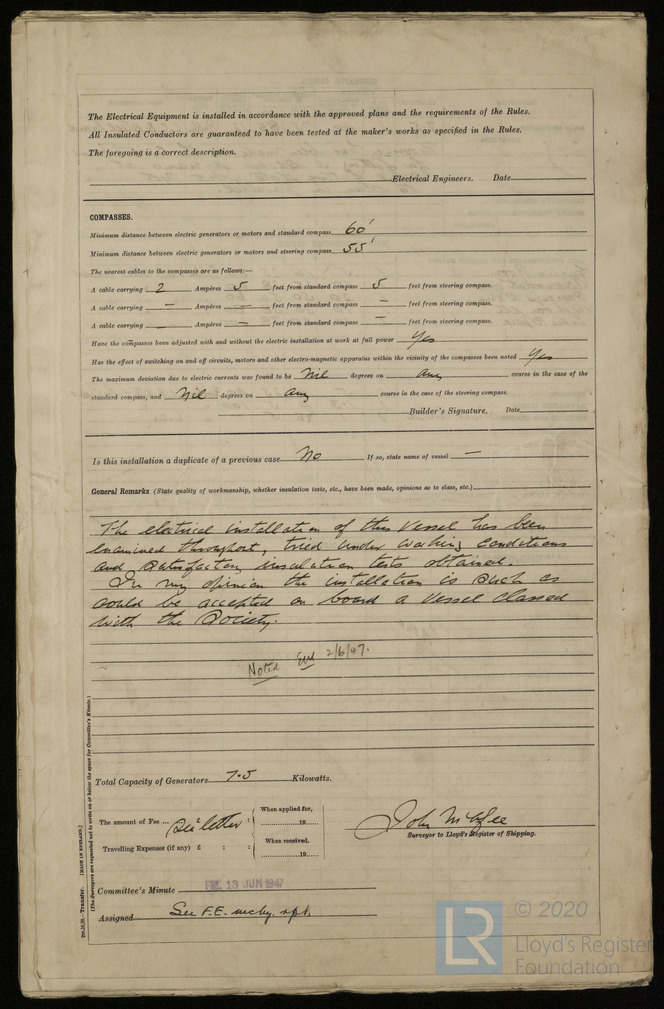 The Electrical Equipment is installed in accordance with the approved plans and the requirements of the Rules.
All Insulated Conductors are guaranteed to have been tested at the maker's works as specified in the Rules.
The foregoing is a correct description.
Electrical Engineers. Date
COMPASSES.
Minimum distance between electric generators or motors and standard compass 60'
Minimum distance between electric generators or motors and steering compass 55'
The nearest cables to the compasses are as follows:—
A cable carrying 2 Ampères 5 feet from standard compass 5 feet from steering compass.
A cable carrying — Ampères — feet from standard compass — feet from steering compass.
A cable carrying — Ampères — feet from standard compass — feet from steering compass.
Have the compasses been adjusted with and without the electric installation at work at full power Yes
Has the effect of switching on and off circuits, motors and other electro-magnetic apparatus within the vicinity of the compasses been noted Yes
The maximum deviation due to electric currents was found to be Nil degrees on any course in the case of the
standard compass, and Nil degrees on any course in the case of the steering compass.
Builder's Signature. Date
Is this installation a duplicate of a previous case No If so, state name of vessel —
General Remarks (State quality of workmanship, whether insulation tests, etc., have been made, opinions as to class, etc.)
The electrical installation of this vessel has been
examined throughout, tried under working conditions
and satisfactory insulation tests obtained.
In my opinion the installation is such as
could be accepted on board a vessel classed
with the Society.
Noted 2/6/47.
Total Capacity of Generators 7.5 Kilowatts.
The amount of Fee ... £ See letter : :
When applied for,
19
Travelling Expenses (if any) £ : :
When received.
19
John McAfee
Surveyor to Lloyd's Register of Shipping.
Committee's Minute FRI. 13 JUN 1947
Assigned See F.E. mchy. rpt.
Transfer. (MADE IN ENGLAND.)
(The Surveyors are requested not to write on or below the space for Committee's Minute.)
LR
© 2020
Lloyd's Register
Foundation